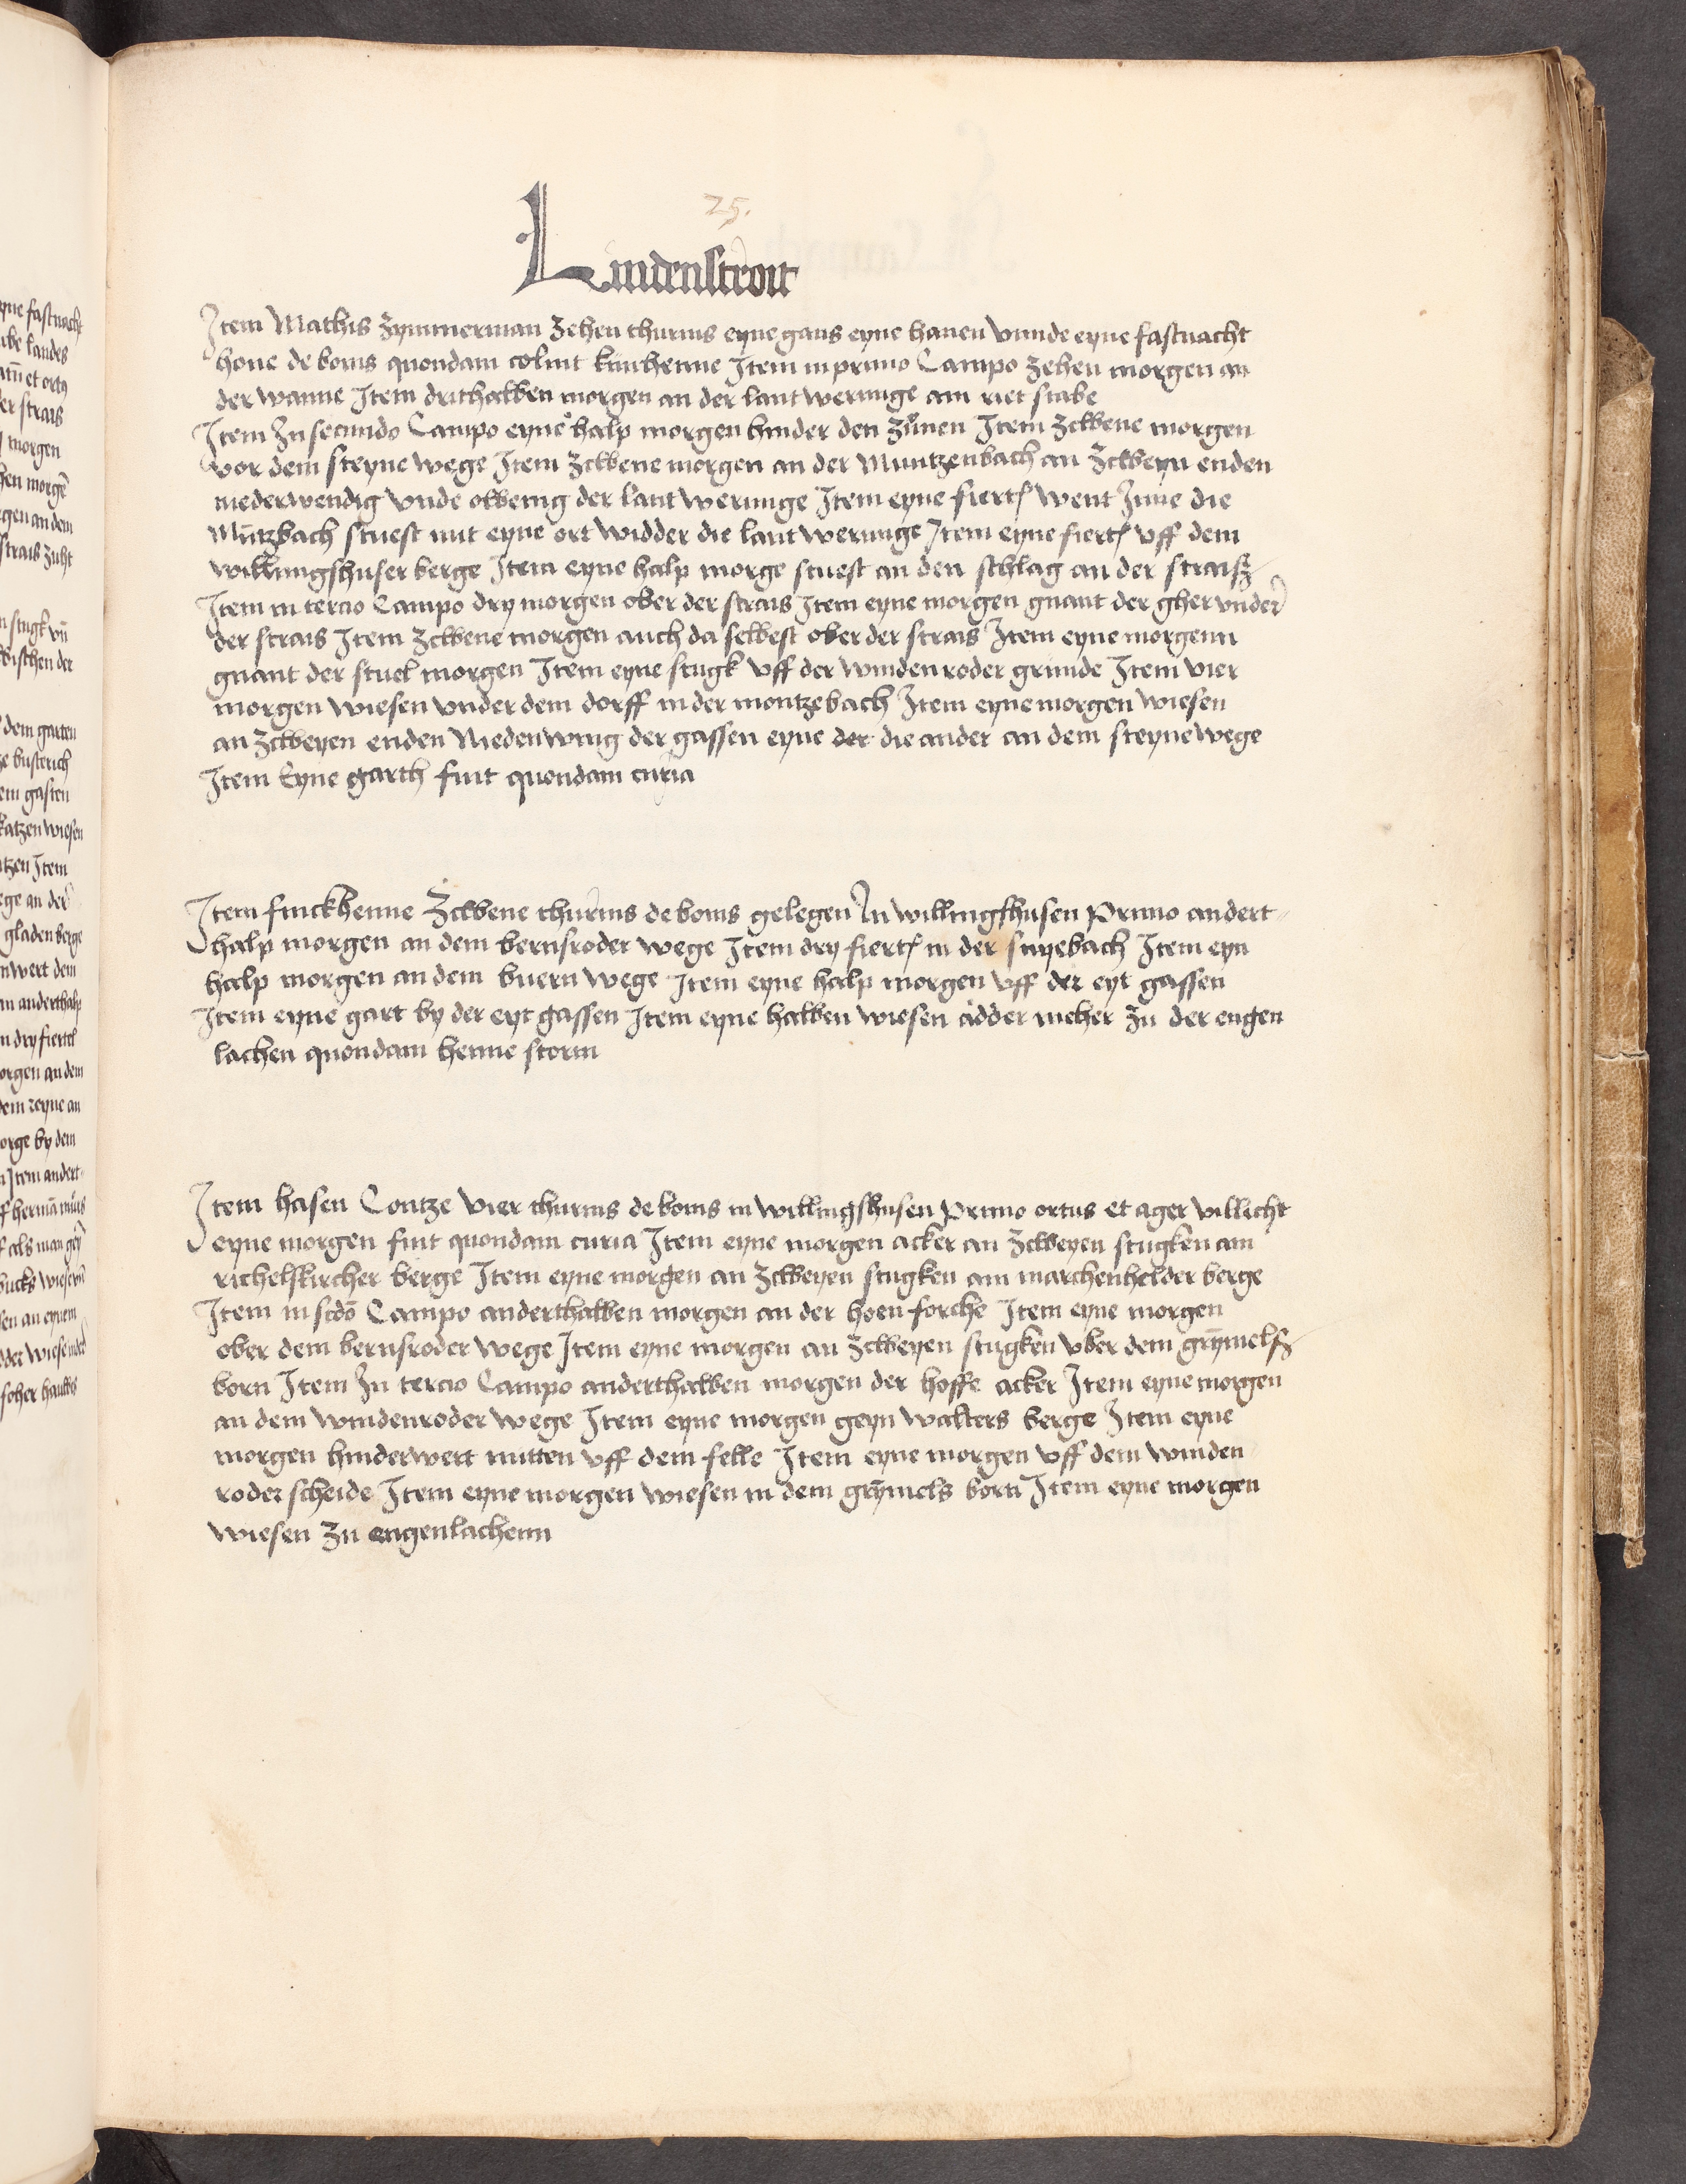 25.
Lindenstroit
Item Mathis Zymmerman Zehen thurnis eyne gans eyne hanen vnnde eyne fastnacht
hone de bonis quondam colmt kirchenne Item in primo Campo Zehen morgen an
der wanne Item drithalben morgen an der lantwerunge am riet stabe
Item In secundo Campo eyne halp morgen hinder den Zunen Item Zcwene morgen
vor dem steyne wege Item Zcwene morgen an der Muntzenbach an Zcweyn enden
niederwendig vnde obwenig der lantwerunge Item eyne fiertl went Jnne die
Muntzbach stuest mit eyne ort widder die lantwerunge Item eyne fiertl vff dem
willungshuser berge Item eyne halp morge stuest an den schlag an der straisz
Item in tercio Campo dry morgen ober der strais Item eyne morgen gnant der gher vnder
der strais Item Zcwene morgen auch da selbest ober der strais Item eyne morgenn
gnant der stuel morgen Item eyne stugk vff der winden roder grunde Item vier
morgen wiesen vnder dem dorff in der montzebach Item eyne morgen wiesen
an Zcweyen enden Niedenwing der gassen eyne der die ander an dem steynewege
Item Eyne garth fuit quondam curia
Item finckhenne Zcwene thurnis de bonis gelegen In willingshusen Primo andert-
halp morgen an dem bernsroder wege Item dry fiertl in der snyebach Item eyn
halp morgen an dem buern wege Item eyne halp morgen vff der eyt gassen
Item eyne gart by der eyt gassen Item eyne halben wiesen adder meher Zu der engen
lachen quondam henne storm
Item hasen Contze vier thurnis de bonis in willingshusen Primo ortus et ager villicht
eyne morgen fuit quondam curia Item eyne morgen acker an Zcweyen stugken am
richelskircher berge Item eyne morgen an Zcweyen stugken am marchenhelder berge
Item in scdo Campo anderthalben morgen an der hoen forche Item eyne morgen
ober dem bernsroder wege Item eyne morgen an Zcweyen stugken vber dem grymelsz
born Item In tercio Campo anderthalben morgen der hoffe acker Item eyne morgen
an dem windenroder wege Item eyne morgen geyn walters berge Item eyne
morgen hinderwert mitten vff dem felle Item eyne morgen vff dem winden
roder scheide Item eyne morgen wiesen in dem grymels born Item eyne morgen
wiesen Zu engenlachenn